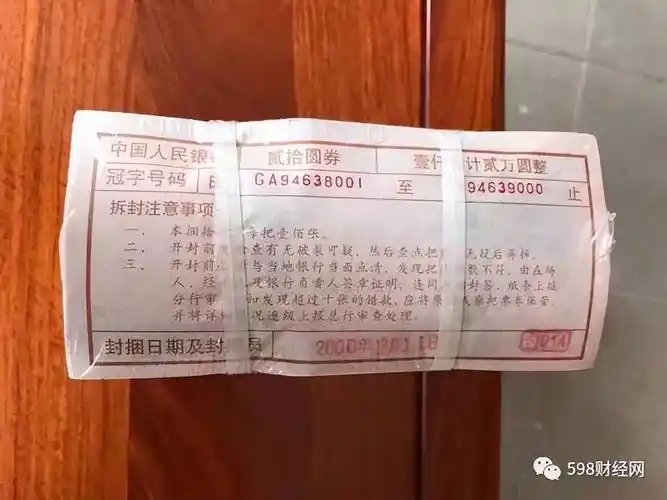 中国人民银 贰拾圆券 壹仟 计贰万圆整
冠字号码 GA94638001 至 94639000 止
拆封注意事项
一、 本捆拾 每把壹佰张。
二、 开封前 查有无破裂可疑，然后查点把 无疑后再拆。
三、 开封前 与当地银行当面点清，发现把 数不符，由在场
人、经 及银行负责人签章证明，连同 封签、纸条上报
分行审 如发现超过十张的错款，应将原 原把票币保管，
并将详 况逐级上报总行审查处理。
封捆日期及封 员 2000年12月1日 014
598财经网